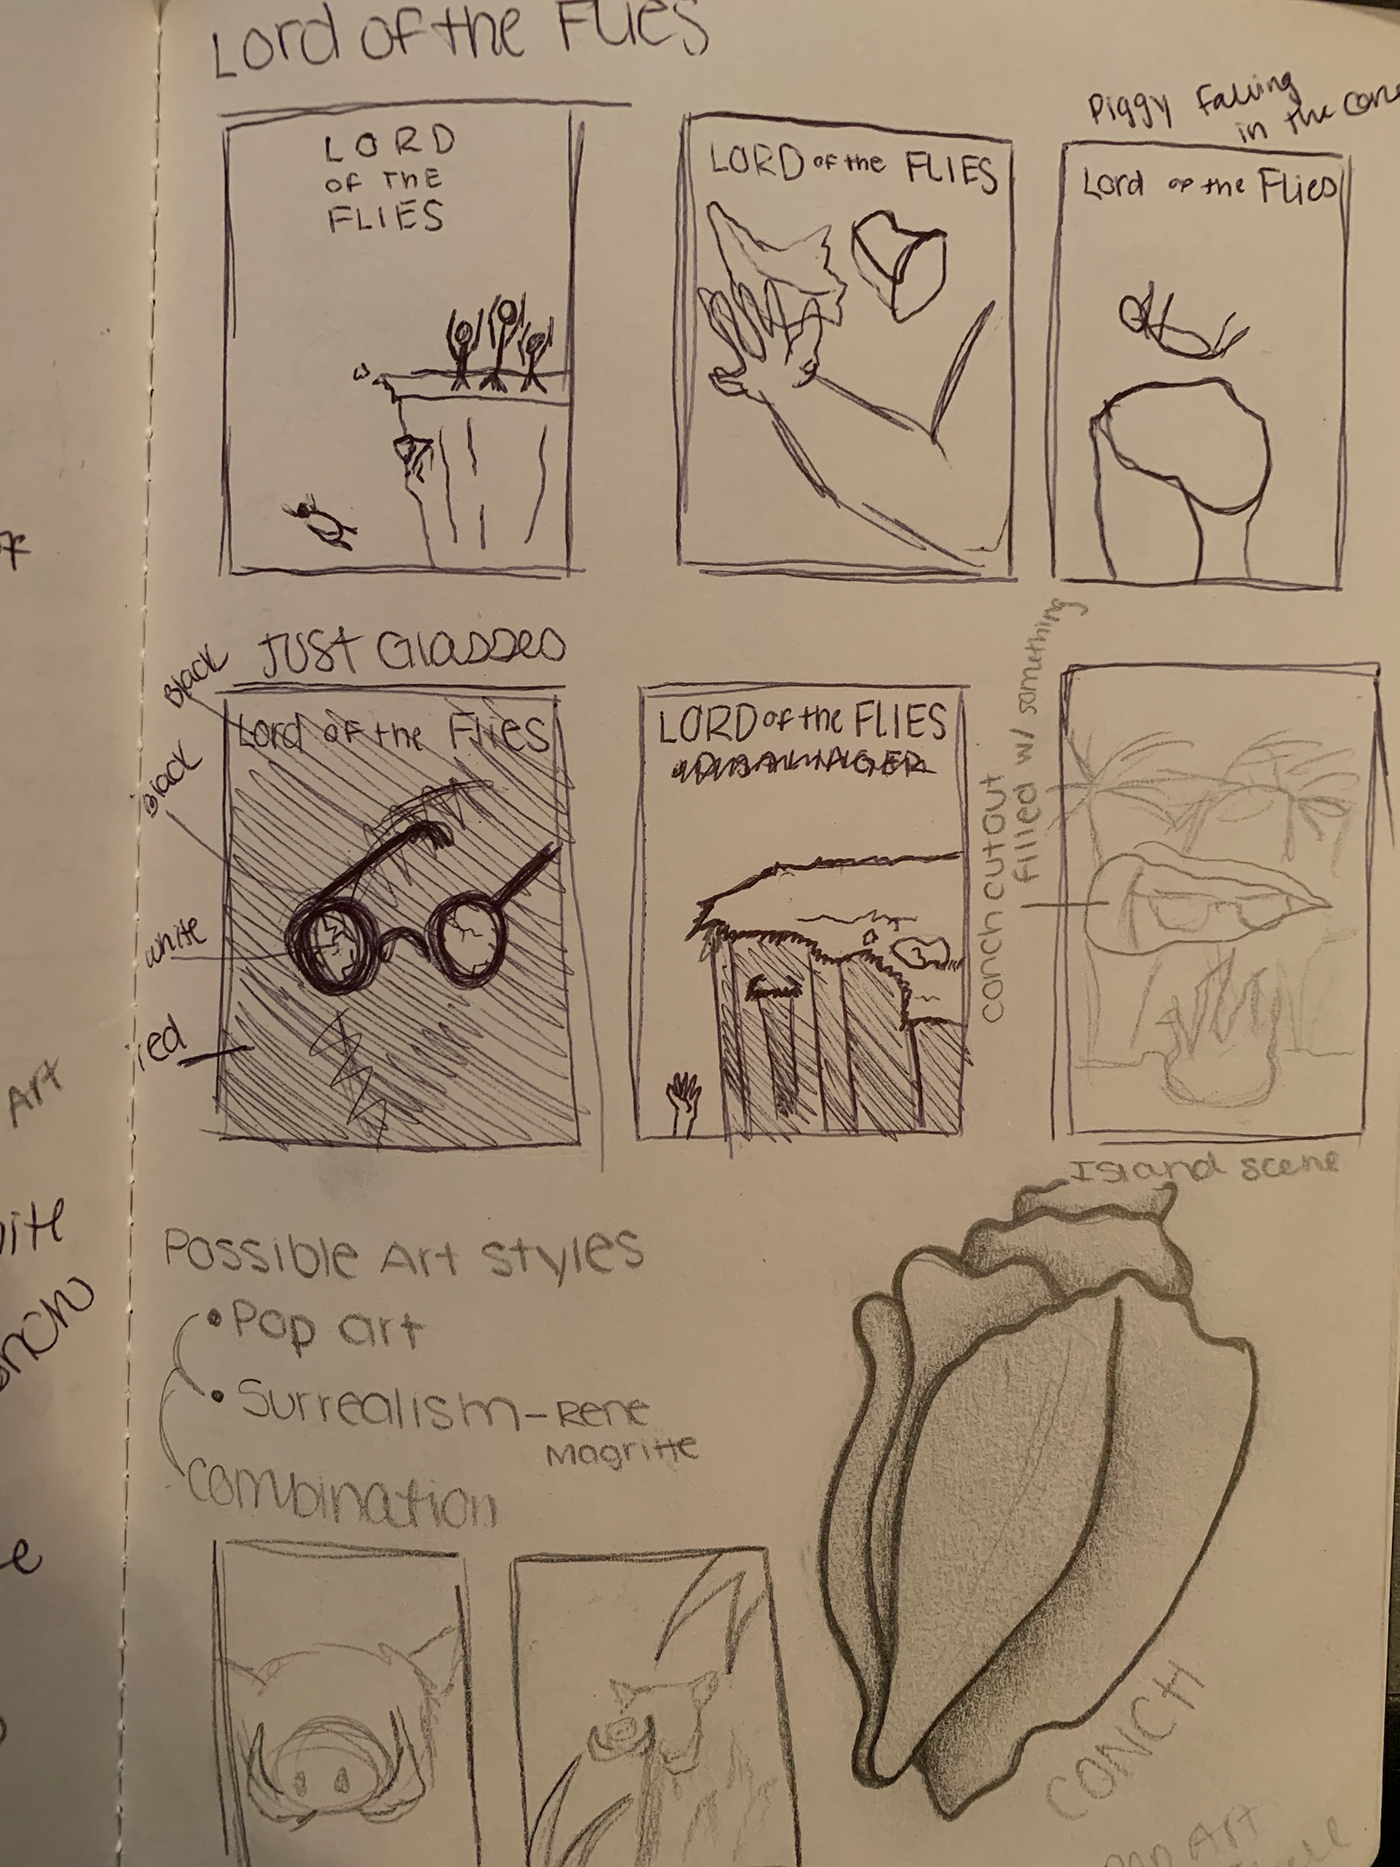 Lord of the Flies
LORD
OF THE
FLIES
LORD of the FLIES
Piggy Falling
in the
Lord of the Flies
JUST GLASSES
Black
Black
white
red
Lord of the Flies
LORD of the FLIES
conch cutout
filled w/ something
Island scene
Possible Art styles
• Pop art
• Surrealism - Rene
Magritte
combination
CONCH
Art
Art